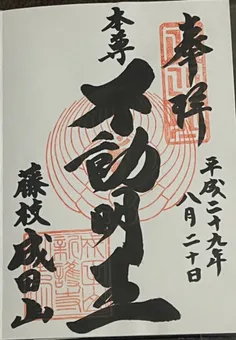 奉拝
平成二十九年
八月二十日
本尊
不動明王
藤枝
成田山